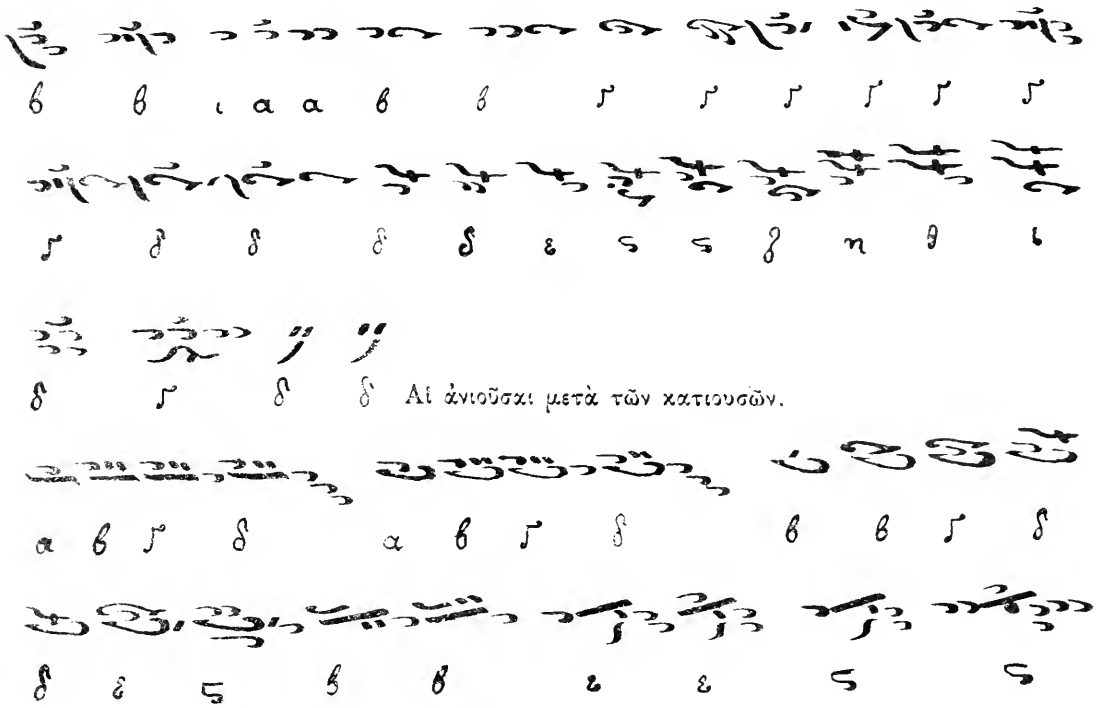 β β ι α α β β γ γ γ γ γ γ
γ δ δ δ δ ε ς ς ζ η θ ι
δ γ δ δ Αἱ ἀνιοῦσαι μετὰ τῶν κατιουσῶν.
α β γ δ α β γ δ β β γ δ
δ ε ς β β ε ε ς ς